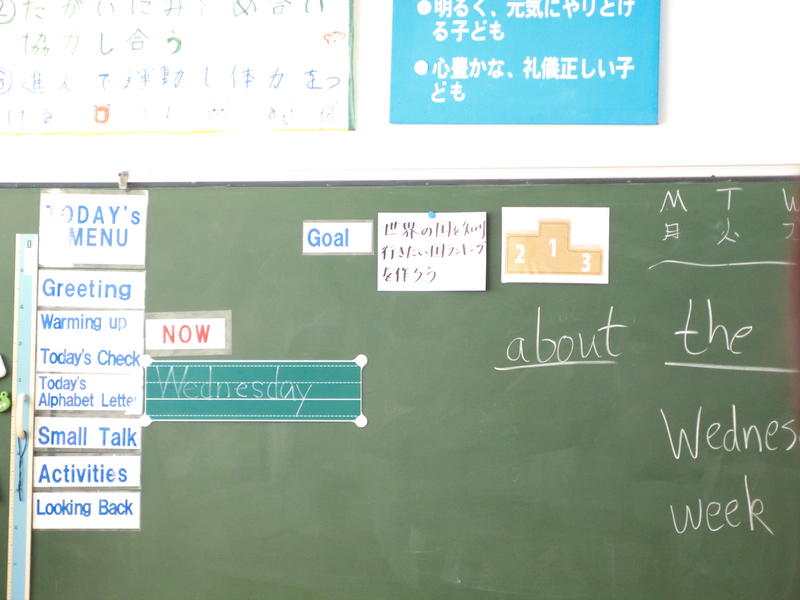 ②たがいにみとめ合い
協力し合う
③進んで運動し体力をつ
ける
●明るく、元気にやりとげ
る子ども
●心豊かな、礼儀正しい子
ども
TODAY's
MENU
Greeting
Warming up
Today's Check
Today's
Alphabet Letter
Small Talk
Activities
Looking Back
NOW
Wednesday
Goal
世界の国を知り
行きたい国ランキング
を作ろう
2 1 3
M T W
月 火
about the
Wednes
week